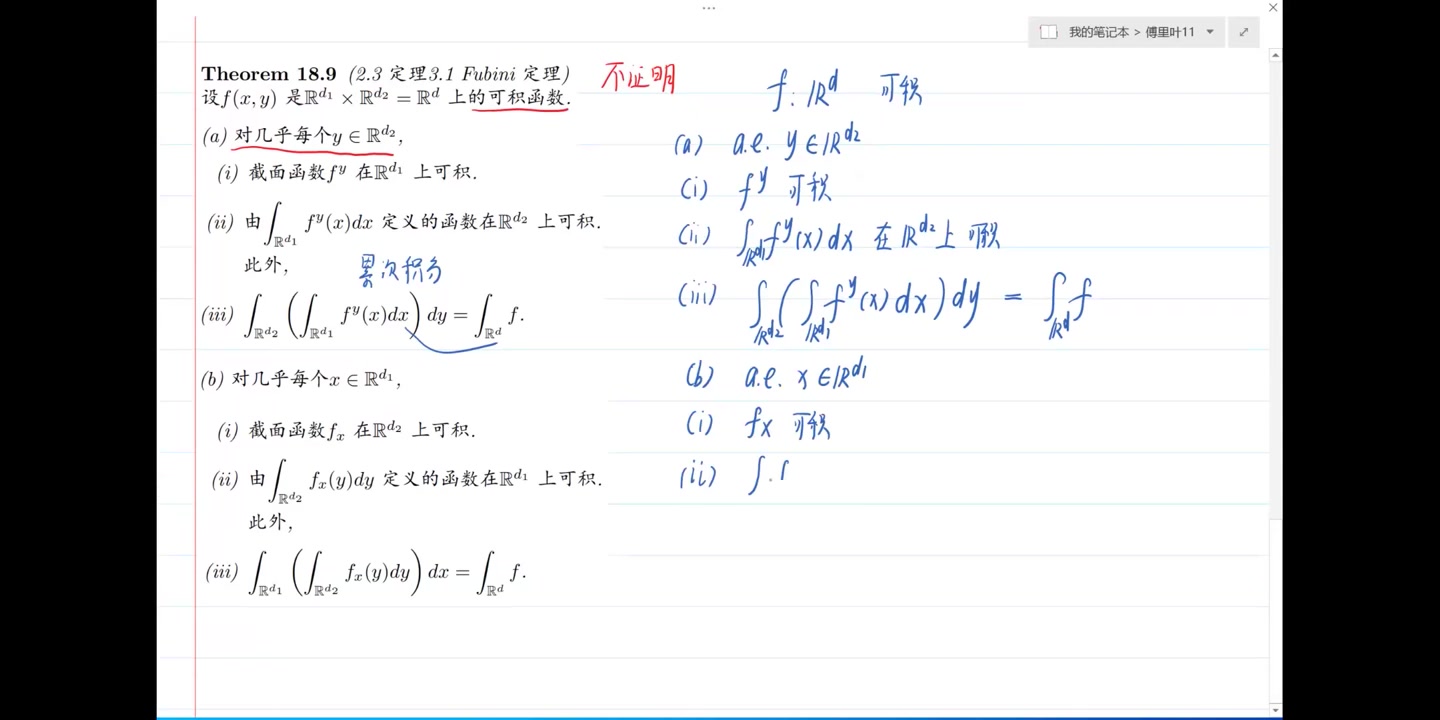 我的笔记本 > 傅里叶11
Theorem 18.9 (2.3 定理3.1 Fubini 定理)
设f(x, y) 是ℝ^{d₁} × ℝ^{d₂} = ℝ^d 上的可积函数.
(a) 对几乎每个y ∈ ℝ^{d₂},
(i) 截面函数f^y 在ℝ^{d₁} 上可积.
(ii) 由∫_{ℝ^{d₁}} f^y(x)dx 定义的函数在ℝ^{d₂} 上可积.
此外,
累次积分
(iii) ∫_{ℝ^{d₂}} (∫_{ℝ^{d₁}} f^y(x)dx) dy = ∫_{ℝ^d} f.
(b) 对几乎每个x ∈ ℝ^{d₁},
(i) 截面函数f_x 在ℝ^{d₂} 上可积.
(ii) 由∫_{ℝ^{d₂}} f_x(y)dy 定义的函数在ℝ^{d₁} 上可积.
此外,
(iii) ∫_{ℝ^{d₁}} (∫_{ℝ^{d₂}} f_x(y)dy) dx = ∫_{ℝ^d} f.
不证明
f: ℝ^d 可积
(a) a.e. y ∈ ℝ^{d₂}
(i) f^y 可积
(ii) ∫_{ℝ^{d₁}} f^y(x) dx 在 ℝ^{d₂} 上 可积
(iii) ∫_{ℝ^{d₂}} (∫_{ℝ^{d₁}} f^y(x) dx) dy = ∫_{ℝ^d} f
(b) a.e. x ∈ ℝ^{d₁}
(i) f_x 可积
(ii) ∫